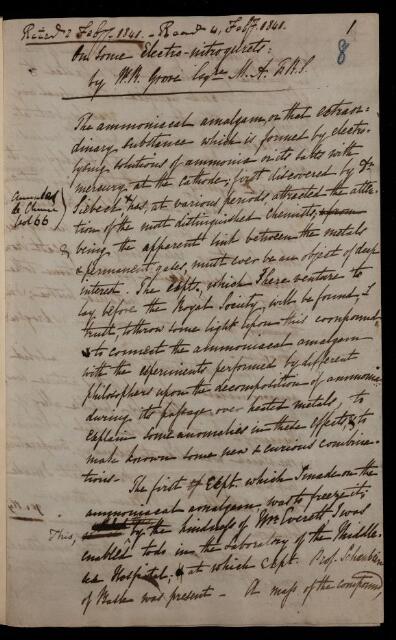 Recd 2 Feby. 1841. - Read 4, Feby. 1841.
1
8
On some Electro-nitrogurets:
by W. R. Grove Esqre. M. A. F.R.S.
The ammoniacal amalgam, or that extraor-
dinary substance which is formed by electro-
lysing solutions of ammonia or its salts with
mercury at the cathode, first discovered by Dr
Annales
de Chimie
vol 66
Siebeck & has, at various periods attracted the atten-
tion of the most distinguished Chemists,
& being the apparent link between the metals
& permanent gases must ever be an object of deep
interest. The expts. which I here venture to
lay before the Royal Society, will be found, I
trust, to throw some light upon this compound
& to connect the ammoniacal amalgam
with the experiments performed by different
philosophers upon the decomposition of ammonia
during its passage over heated metals, to
explain some anomalies in these effects, & to
make known some new & curious combina-
tions.
The first Expt. which I made on the
ammoniacal amalgam was to freeze it;
This, by the kindness of Mr Everett I was
enabled to do in the Laboratory of the Middle-
sex Hospital; at which Expt. Prof. Schönbein
of Basle was present - A mass of the compound,